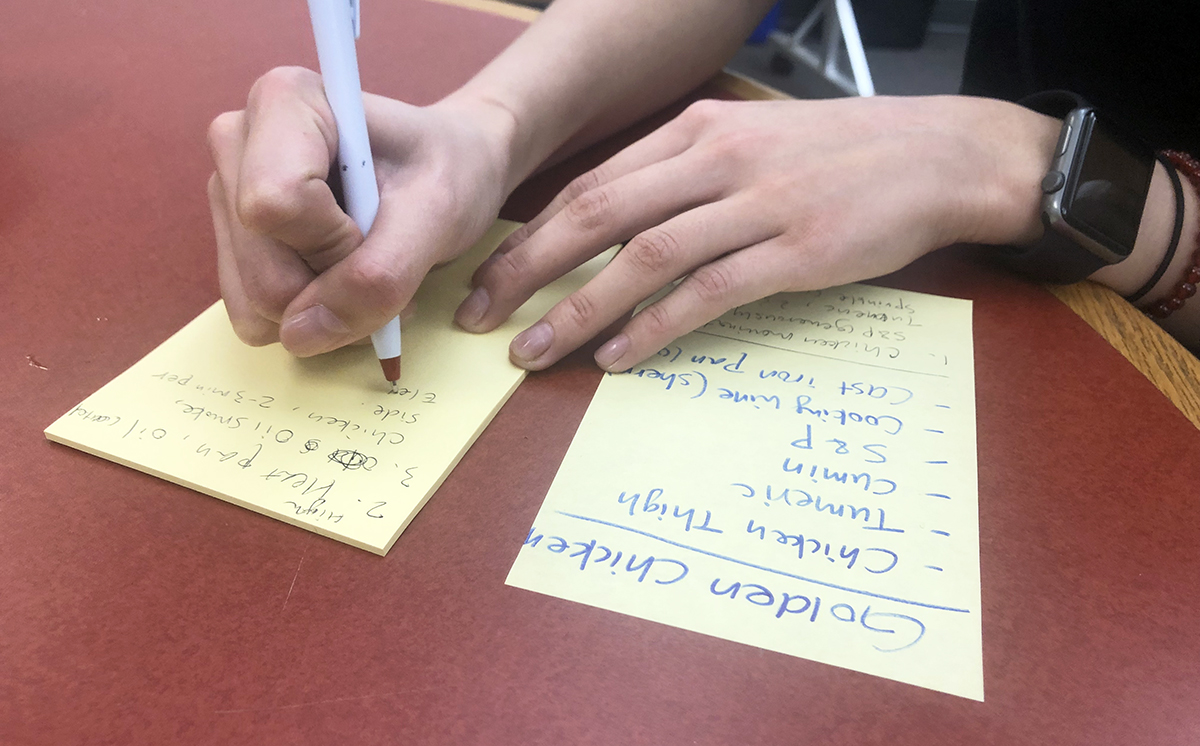 Golden Chicken
- Chicken Thigh
- Tumeric
- Cumin
- S&P
- Cooking Wine (sher
- Cast iron Pan (o
1- Chicken
S&P generously
Tumeric, 2
Sprinkle
High
2. Heat pan, oil
3. Oil smoke,
chicken, 2-3 min per
side.